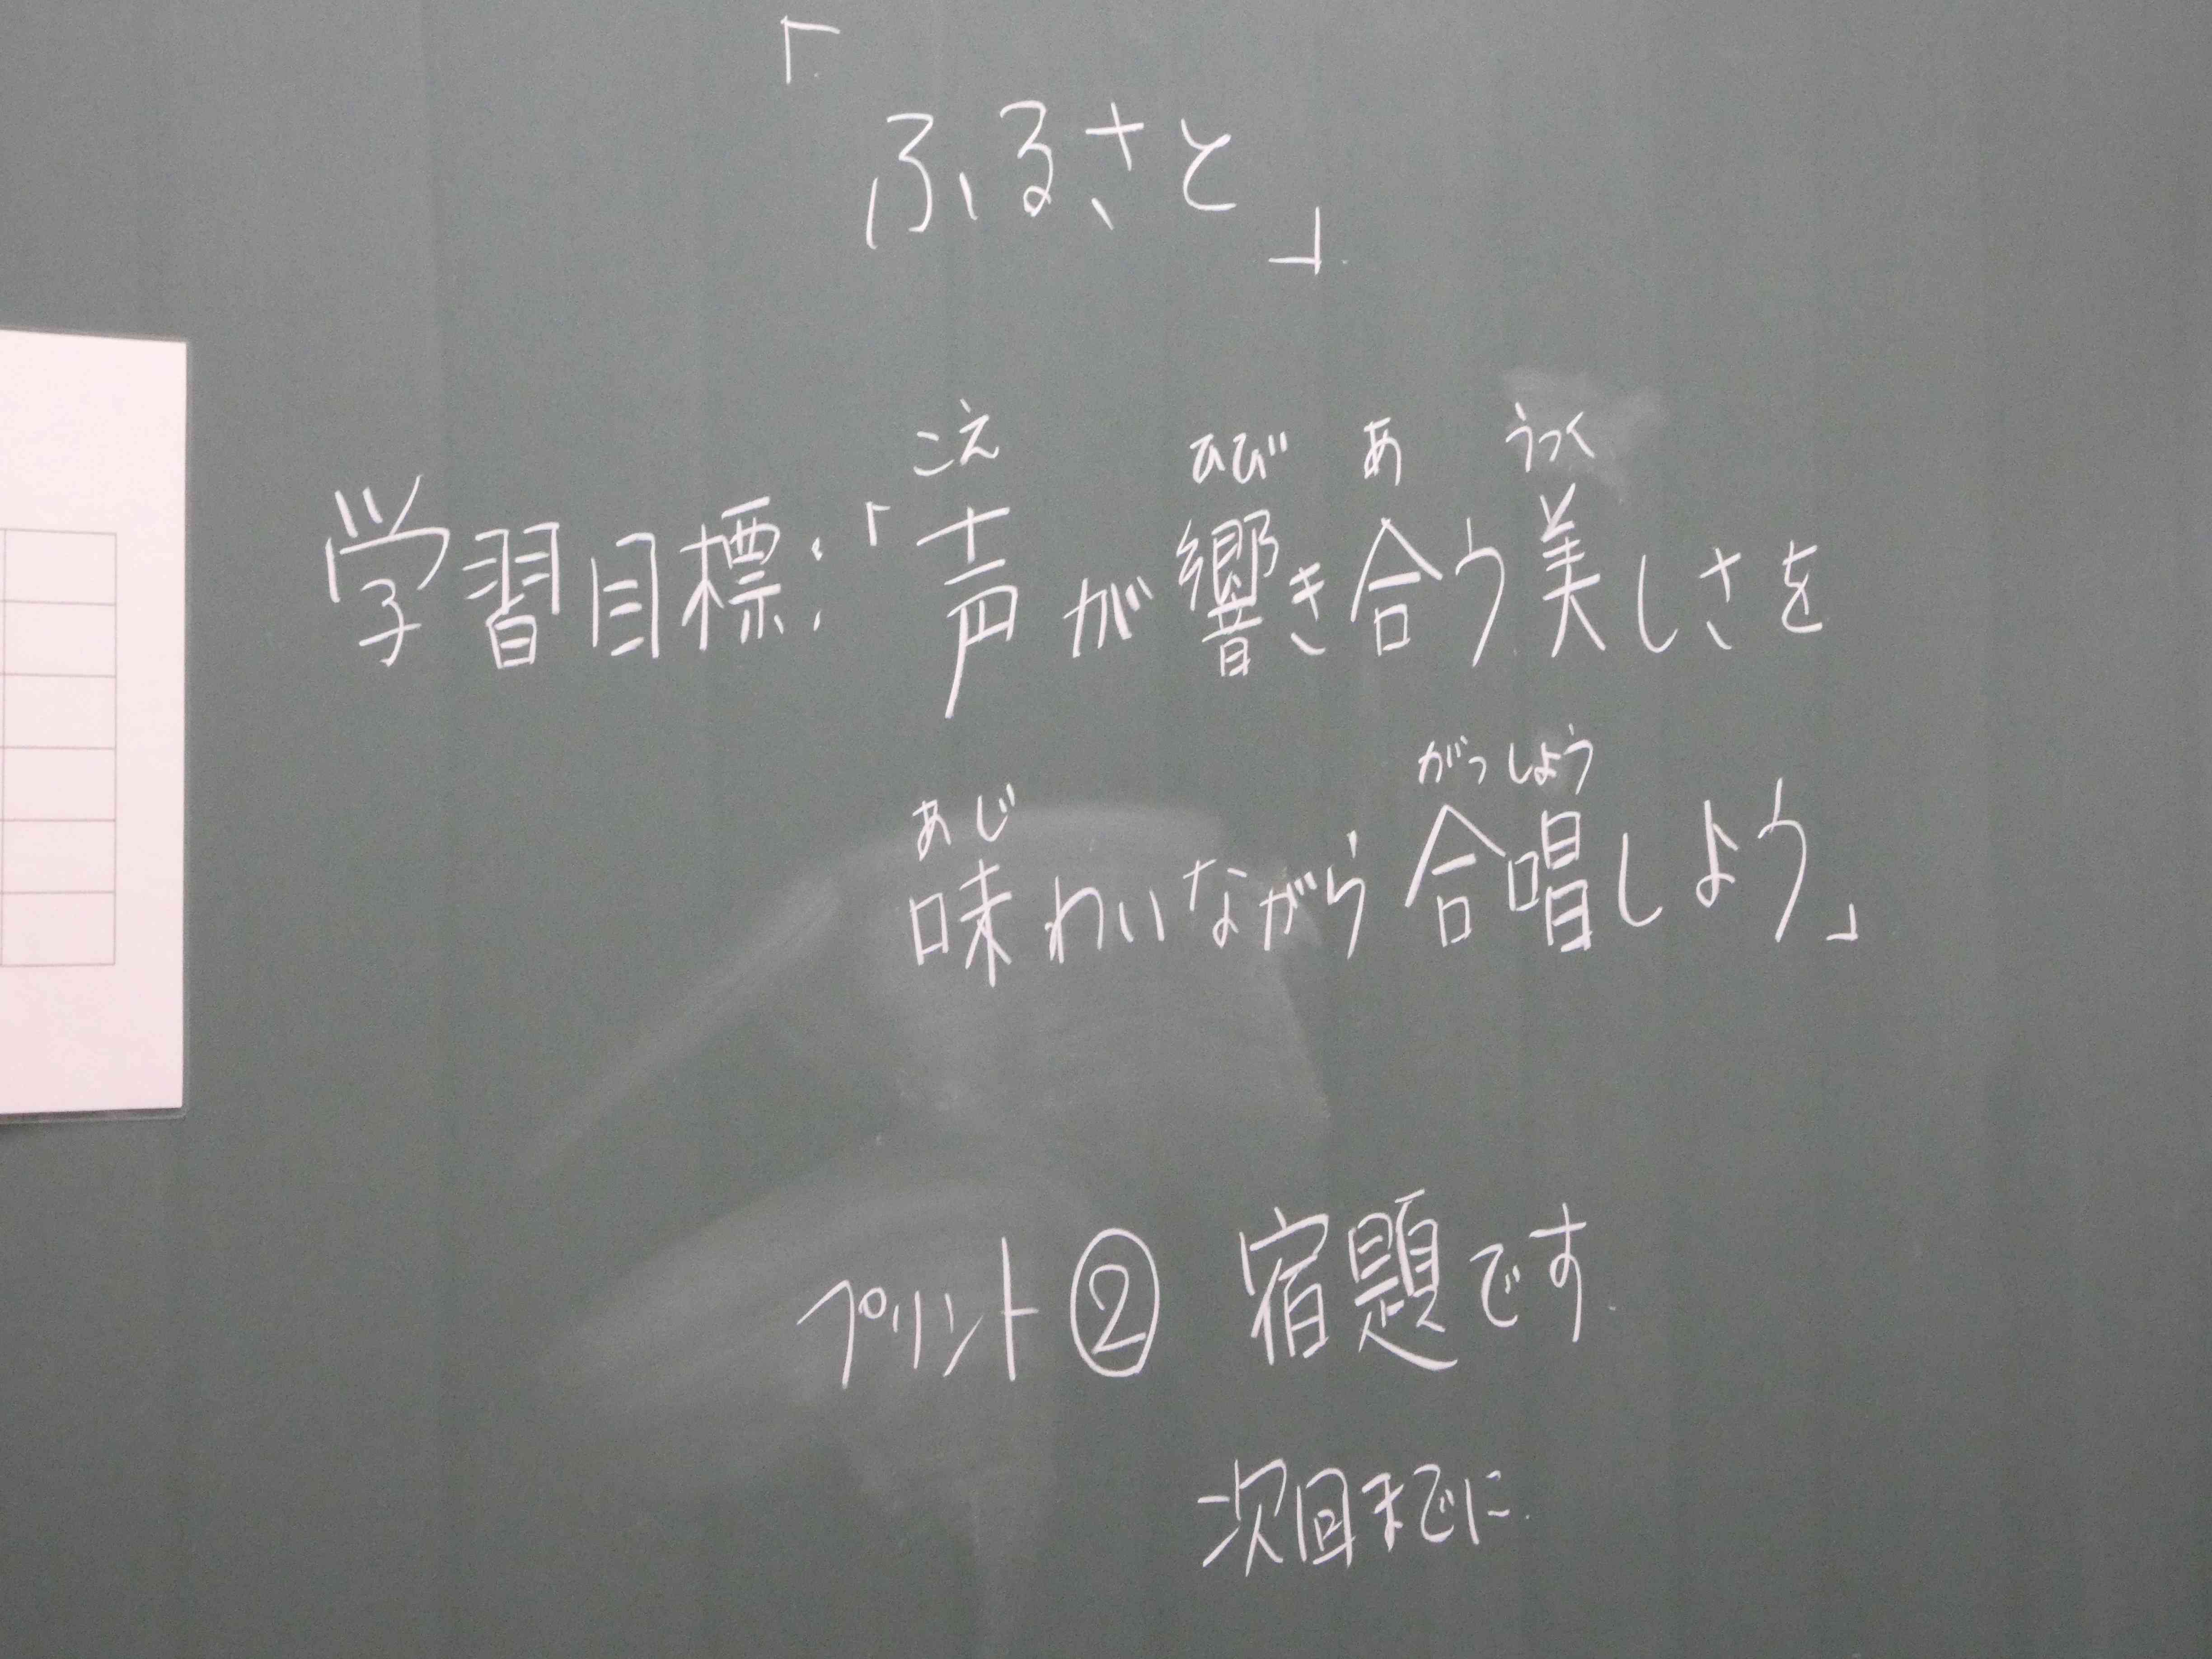 「ふるさと」
こえ ひび あ うつく
学習目標:「声が響き合う美しさを
あじ がっしょう
味わいながら合唱しよう」
プリント② 宿題です
次回までに